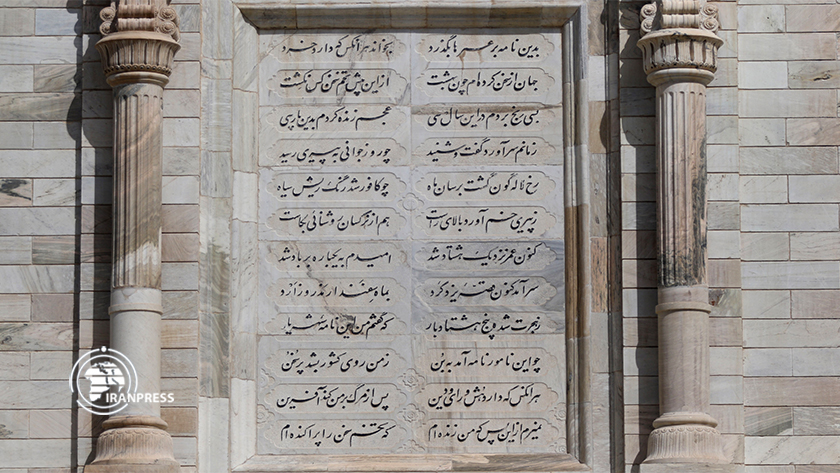 بدین نامه بر عمرها بگذرد بخواند هرانکس که دارد خرد
جهان از سخن کرده‌ام چون بهشت از این بیش تخم سخن کس نکشت
بسی رنج بردم در این سال سی عجم زنده کردم بدین پارسی
زمانم سرآورد گفت و شنید چو روز جوانی به پیری رسید
رخ لاله گون گشت برسان ماه چو کافور شد رنگ ریش سیاه
ز پیری خم آورد بالای راست هم از نرگسان روشنائی بکاست
کنون عمر نزدیک هشتاد شد امیدم به یکباره بر باد شد
سرآمد کنون قصه یزدگرد بماه سفندارمذ روز ارد
ز هجرت شده پنج هشتاد بار که گفتم من این نامه شهریار
چو این نامور نامه آمد به بن ز من روی کشور بشد پر سخن
هرانکس که دارد هش و رای و دین پس از مرگ بر من کند آفرین
نمیرم از این پس که من زنده‌ام که تخم سخن را پراکنده‌ام
IRANPRESS